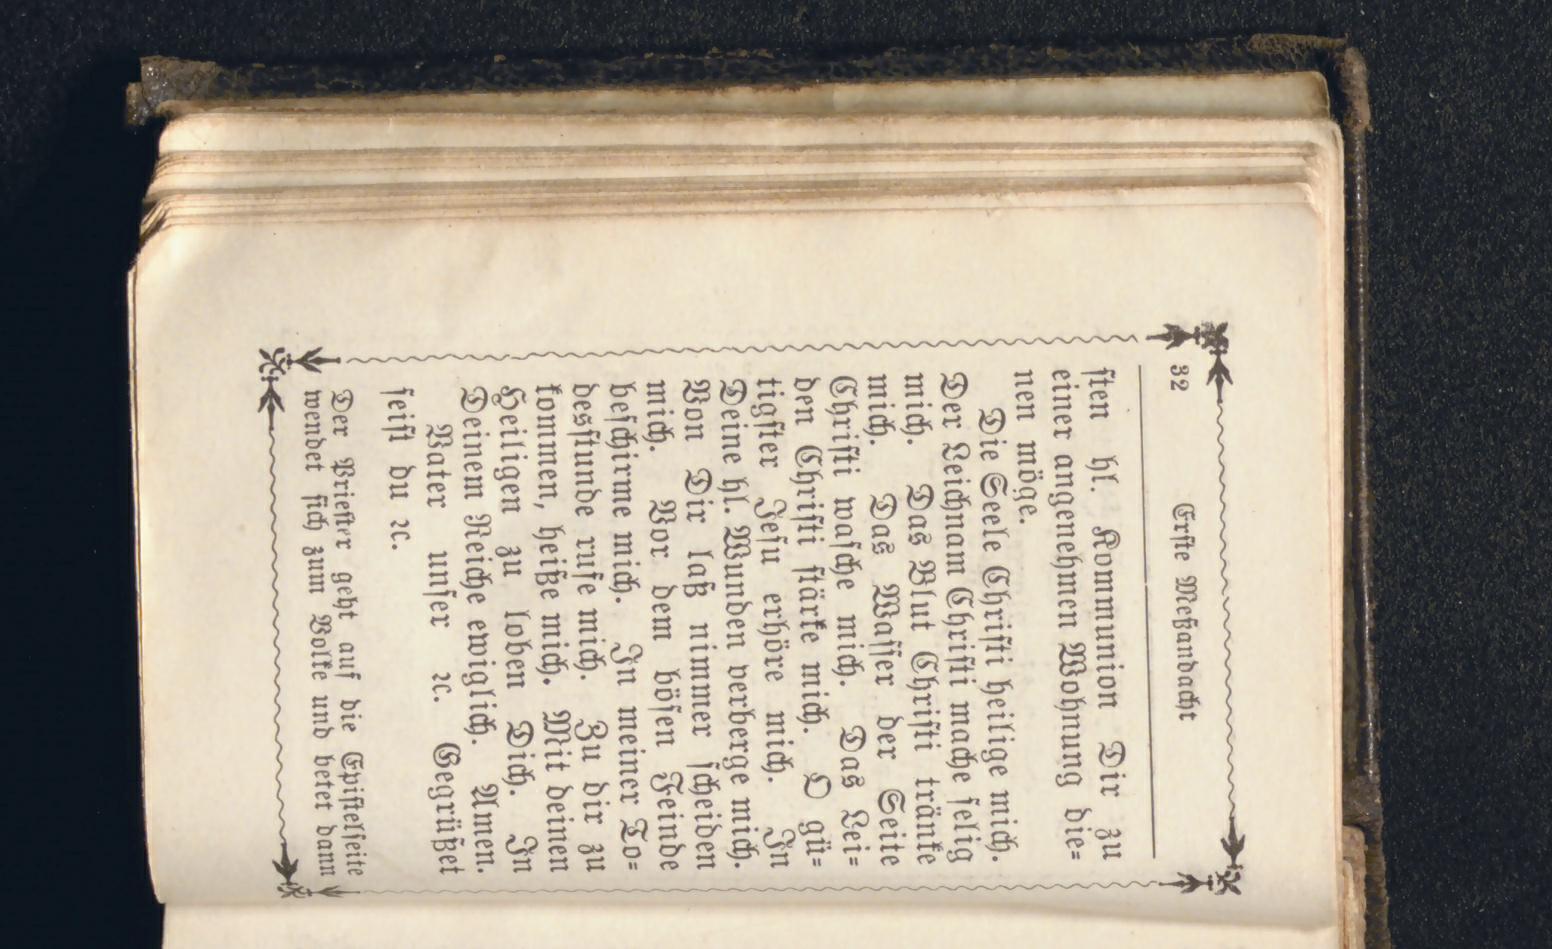 32 Erste Meßandacht
sten hl. Kommunion Dir zu
einer angenehmen Wohnung die-
nen möge.
Die Seele Christi heilige mich.
Der Leichnam Christi mache selig
mich. Das Blut Christi tränke
mich. Das Wasser der Seite
Christi wasche mich. Das Lei-
den Christi stärke mich. O gü-
tigster Jesu erhöre mich. In
Deine hl. Wunden verberge mich.
Von Dir laß nimmer scheiden
mich. Vor dem bösen Feinde
beschirme mich. In meiner To-
desstunde rufe mich. Zu dir zu
kommen, heiße mich. Mit deinen
Heiligen zu loben Dich. In
Deinem Reiche ewiglich. Amen.
Vater unser ꝛc. Gegrüßet
seist du ꝛc.
Der Priester geht auf die Epistelseite
wendet sich zum Volke und betet dann